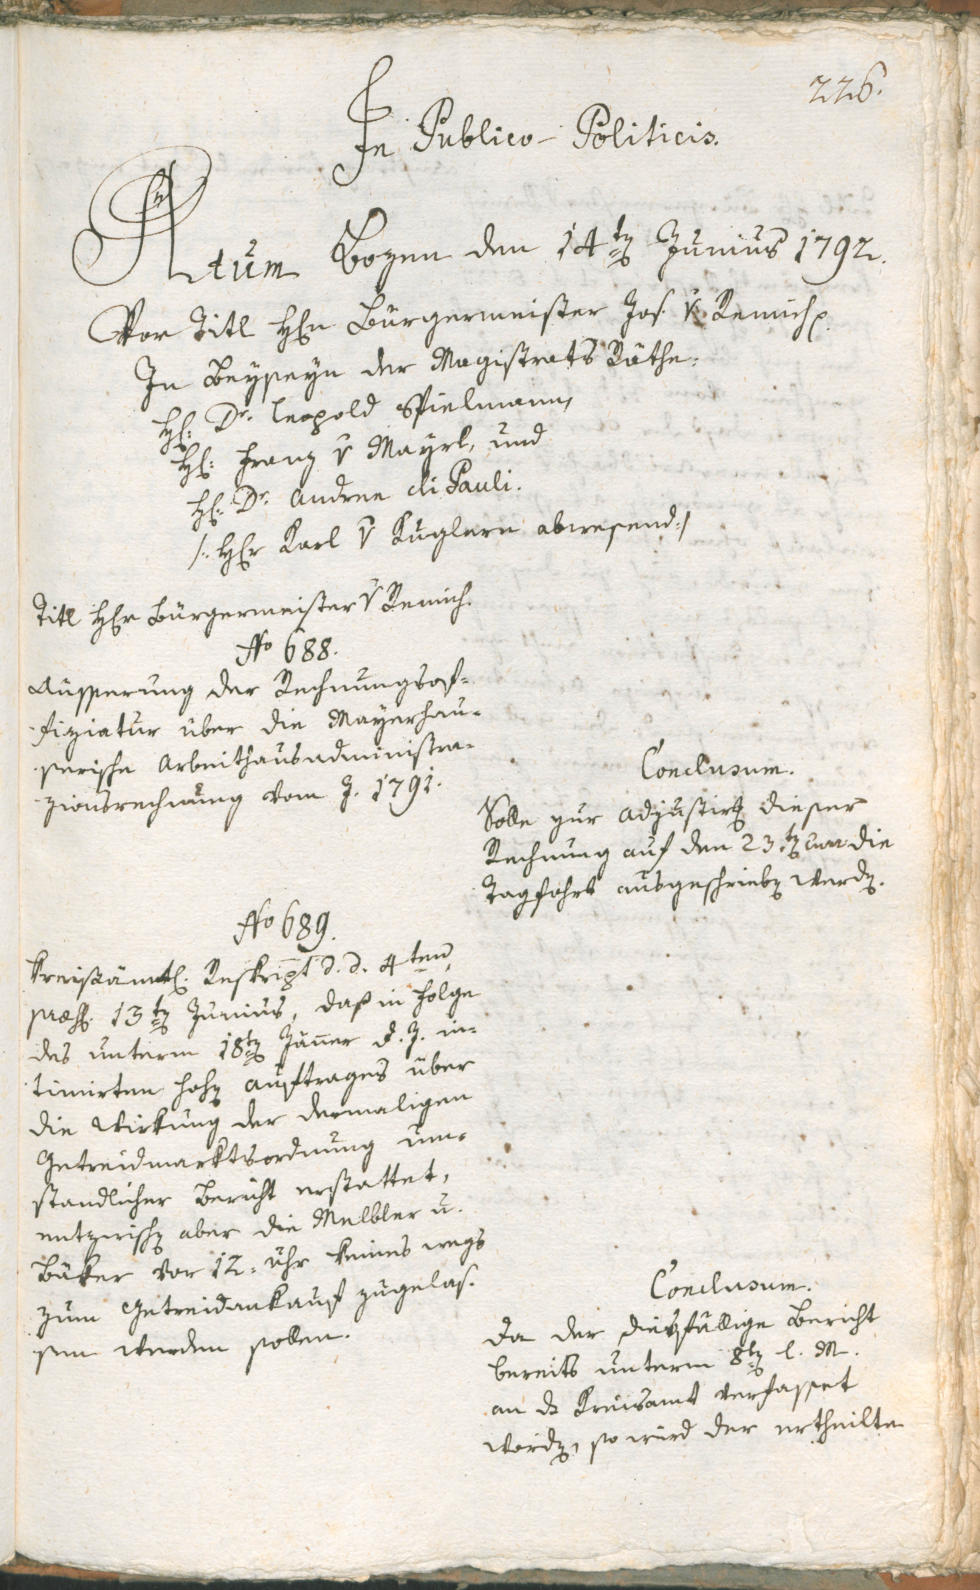 226.
In Publico-Politicis.
Actum Bozen den 14tn Junius 1792.
Vor Titl Hrn Bürgermeister Jos. v Remich
In Beyseyn der Magistrats Räthe:
H: Dr. Leopold Spielmann,
H: Franz v Mayrl, und
H: Dr. Andree di Pauli.
/: Herr Karl v Kuglern abwesend:/
Titl Herr Bürgermeister v Remich.
No 688.
Äusserung der Rechnungsof-
fiziatur über die Mayerhau-
serische Arbeithausadministra-
zionsrechnung vom J. 1791.
Conclusum.
Solle zur Adjustirg dieser
Rechnung auf den 23tn curr die
Tagfahrt ausgeschriebn werdn.
No 689.
Kreisämtl. Reskript d. d. 4ten,
præs. 13tn Junius, daß in Folge
des unterm 18tn Jäner d. J. in-
timirten hohn Auftrages über
die Wirkung der dermaligen
Getreidmarktsordnung um-
standlicher Bericht erstattet,
entzwischn aber die Melbler u.
Bäker vor 12. Uhr keines wegs
zum Getreidankauf zugelas-
sen werden sollen.
Conclusum.
Da der diesfällige Bericht
bereits unterm 8tn l. M.
an ds Kreisamt verfasset
wordn, so wird der ertheilte